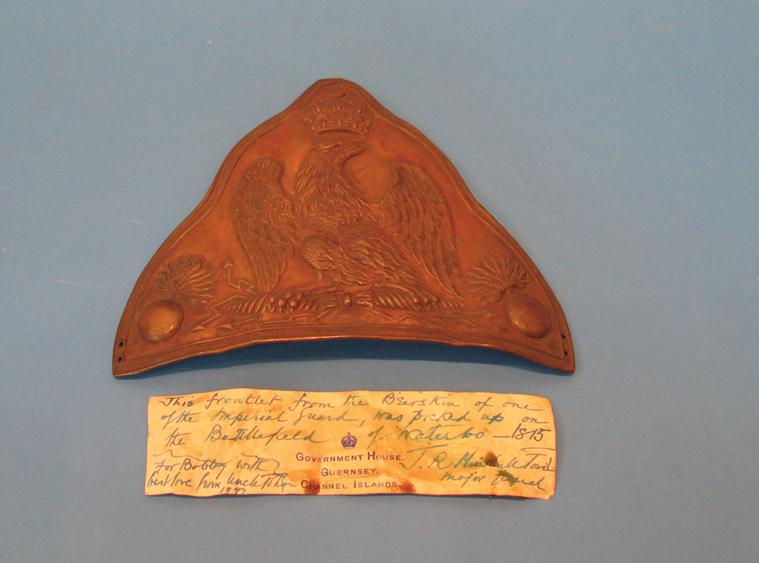 This frontlet from the B'erskin of one
of the Imperial Guard, was picked up on
the Battlefield of Waterloo — 1815
GOVERNMENT HOUSE,
GUERNSEY,
CHANNEL ISLANDS.
For Bobby with
best love from Uncle
J. R.
Major